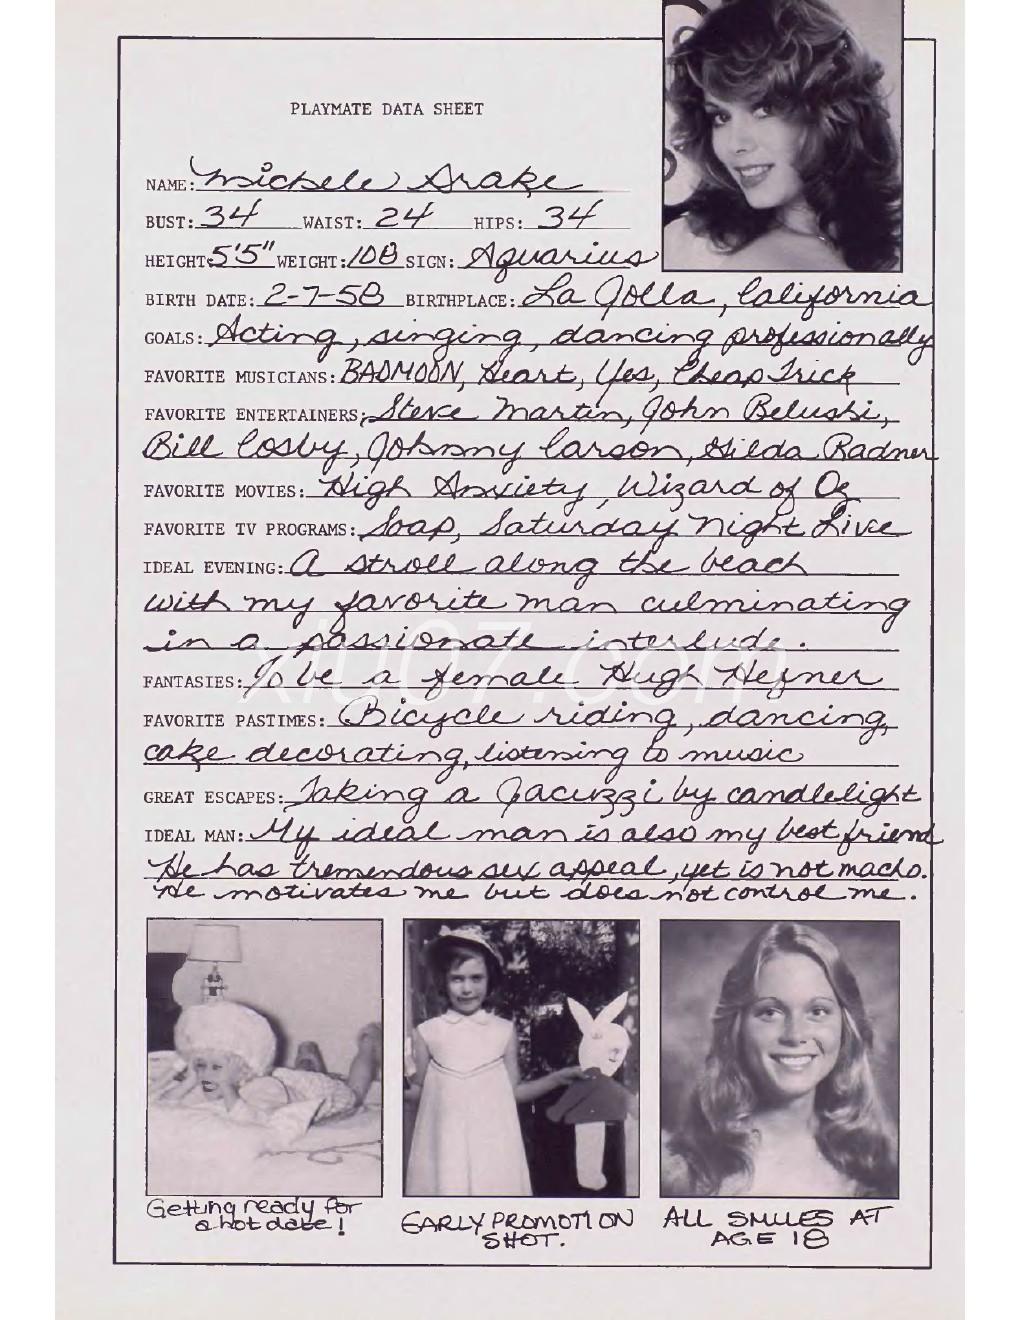 PLAYMATE DATA SHEET
NAME: Michele Drake
BUST: 34 WAIST: 24 HIPS: 34
HEIGHT: 5'5" WEIGHT: 108 SIGN: Aquarius
BIRTH DATE: 2-7-58 BIRTHPLACE: La Jolla, California
GOALS: Acting, singing, dancing professionally
FAVORITE MUSICIANS: BADMOON, Heart, Yes, Cheap Trick
FAVORITE ENTERTAINERS: Steve Martin, John Belushi,
Bill Cosby, Johnny Carson, Gilda Radner
FAVORITE MOVIES: High Anxiety, Wizard of Oz
FAVORITE TV PROGRAMS: Soap, Saturday Night Live
IDEAL EVENING: A stroll along the beach
with my favorite man culminating
in a passionate interlude.
xiu07.com
FANTASIES: To be a female Hugh Hefner
FAVORITE PASTIMES: Bicycle riding, dancing,
cake decorating, listening to music
GREAT ESCAPES: Taking a Jacuzzi by candlelight
IDEAL MAN: My ideal man is also my best friend
He has tremendous sex appeal, yet is not macho.
He motivates me but does not control me.
Getting ready for
a hot date!
EARLY PROMOTION
SHOT.
ALL SMILES AT
AGE 18